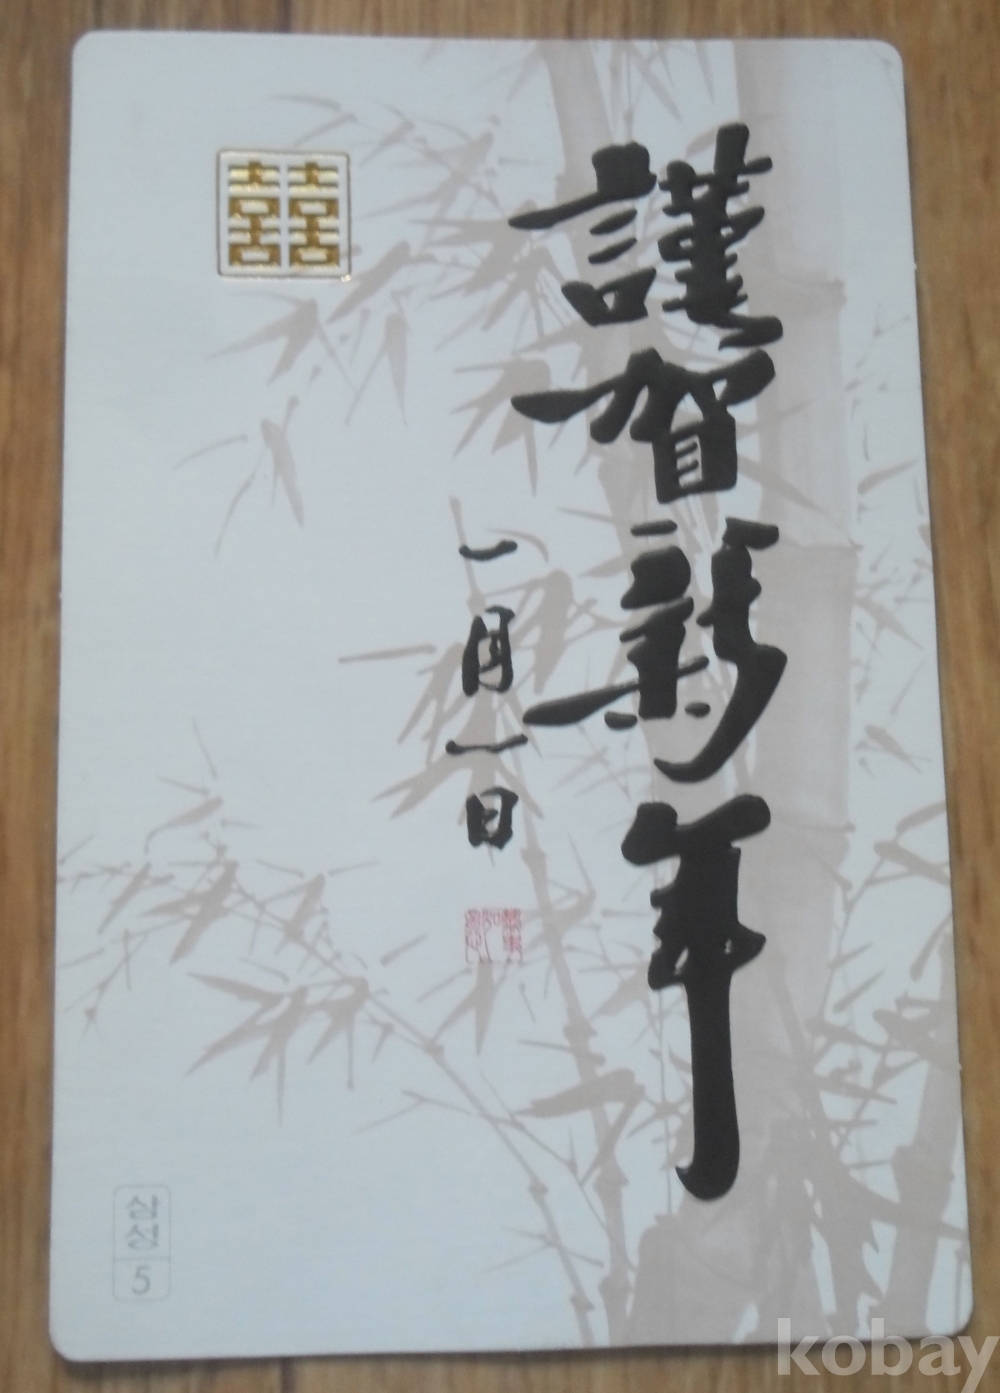 謹賀新年
一月一日
囍
심성
5
kobay